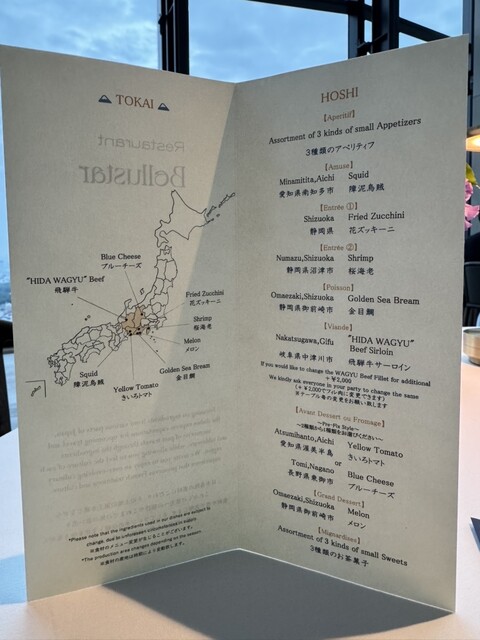 TOKAI
Restaurant
Bellustar
Blue Cheese
ブルーチーズ
"HIDA WAGYU" Beef
飛騨牛
Fried Zucchini
花ズッキーニ
Shrimp
桜海老
Melon
メロン
Golden Sea Bream
金目鯛
Squid
障泥烏賊
Yellow Tomato
きいろトマト
*Please note that the ingredients used in our dishes are subject to
change due to unforeseen circumstances in supply.
※食材のメニュー変更が生じることがございます。
*The production area changes depending on the season.
※食材の産地は時期により変動致します。
HOSHI
【Aperitif】
Assortment of 3 kinds of small Appetizers
3種類のアペリティフ
【Amuse】
Minamitita,Aichi Squid
愛知県南知多市 障泥烏賊
【Entrée ①】
Shizuoka Fried Zucchini
静岡県 花ズッキーニ
【Entrée ②】
Numazu,Shizuoka Shrimp
静岡県沼津市 桜海老
【Poisson】
Omaezaki,Shizuoka Golden Sea Bream
静岡県御前崎市 金目鯛
【Viande】
Nakatsugawa,Gifu "HIDA WAGYU" Beef Sirloin
岐阜県中津川市 飛騨牛サーロイン
If you would like to change the WAGYU Beef Fillet for additional
+¥2,000
We kindly ask everyone in your party to change the same
(+¥2,000でフィレ肉に変更できます)
※テーブル毎の変更をお願い致します
【Avant Dessert ou Fromage】
~Pre-Fix Style~
~2種類から1種類をお選びください~
Atsumihanto,Aichi Yellow Tomato
愛知県渥美半島 きいろトマト
or
Tomi,Nagano Blue Cheese
長野県東御市 ブルーチーズ
【Grand Dessert】
Omaezaki,Shizuoka Melon
静岡県御前崎市 メロン
【Mignardises】
Assortment of 3 kinds of small Sweets
3種類のお茶菓子